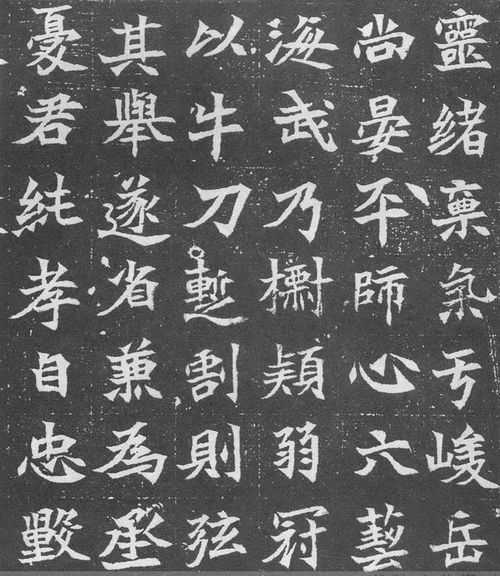 靈緒稟氣亏峻岳
尚晏平師心六藝
海武乃穎弱冠
以牛刀暫割則弦
其舉遂省兼為丞
憂君純孝自忠